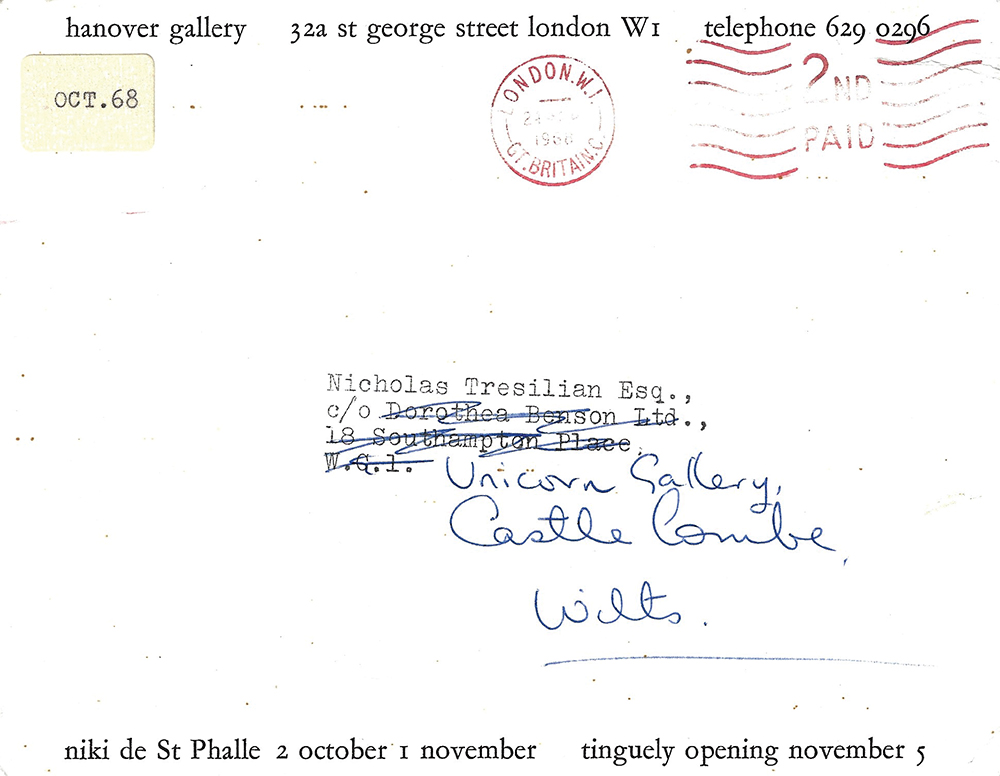 hanover gallery 32a st george street london W1 telephone 629 0296
OCT.68
LONDON.W.1.
1968
GT. BRITAIN.C.
2ND
PAID
Nicholas Tresilian Esq.,
c/o Dorothea Benson Ltd.,
18 Southampton Place,
W.C.1.
Unicorn Gallery,
Castle Combe,
Wilts.
niki de St Phalle 2 october 1 november tinguely opening november 5